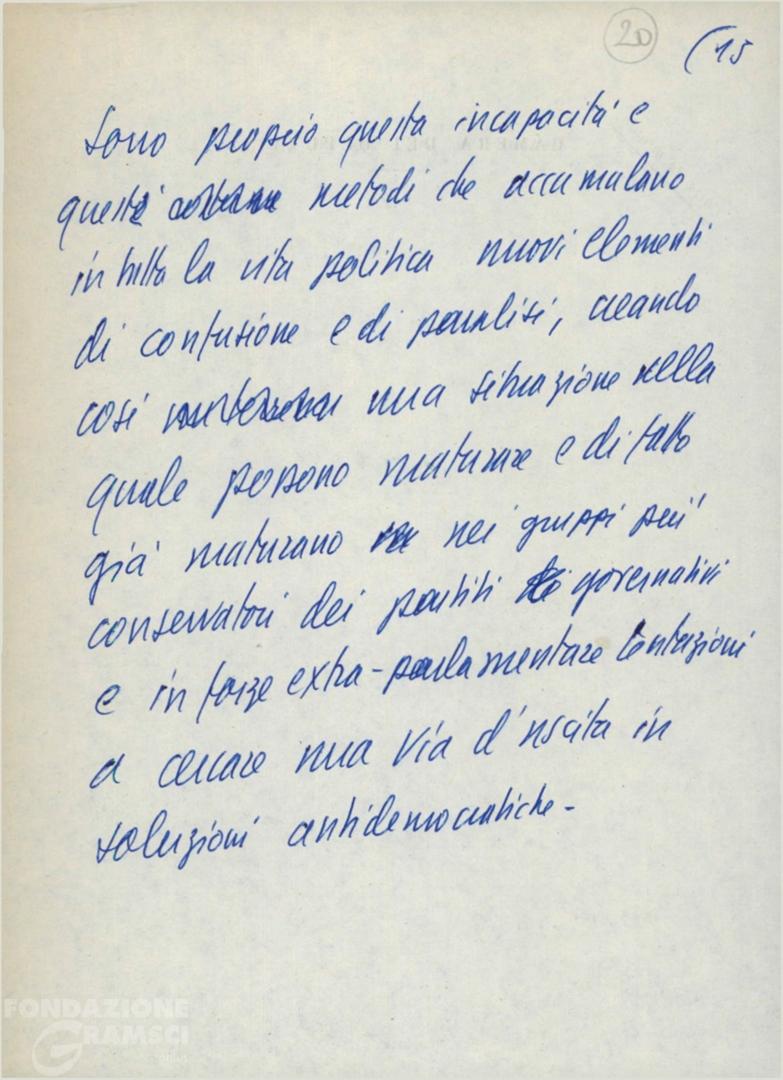 20
(15
Sono proprio questa incapacità e
questi metodi che accumulano
in tutta la vita politica nuovi elementi
di confusione e di paralisi, creando
così una situazione nella
quale possono maturare e di fatto
già maturano nei gruppi più
conservatori dei partiti governativi
e in forze extra-parlamentare tentazioni
a cercare una via d'uscita in
soluzioni antidemocratiche -
FONDAZIONE
GRAMSCI